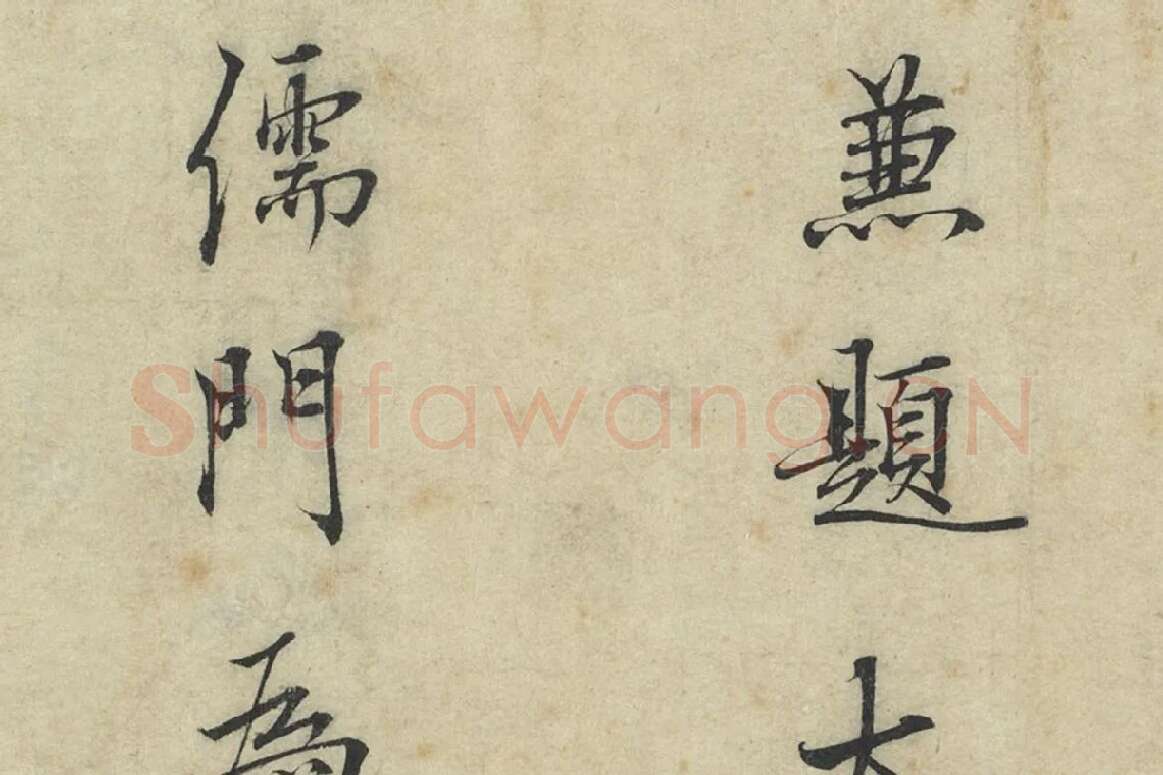 兼題
儒門為
Shufawang.CN